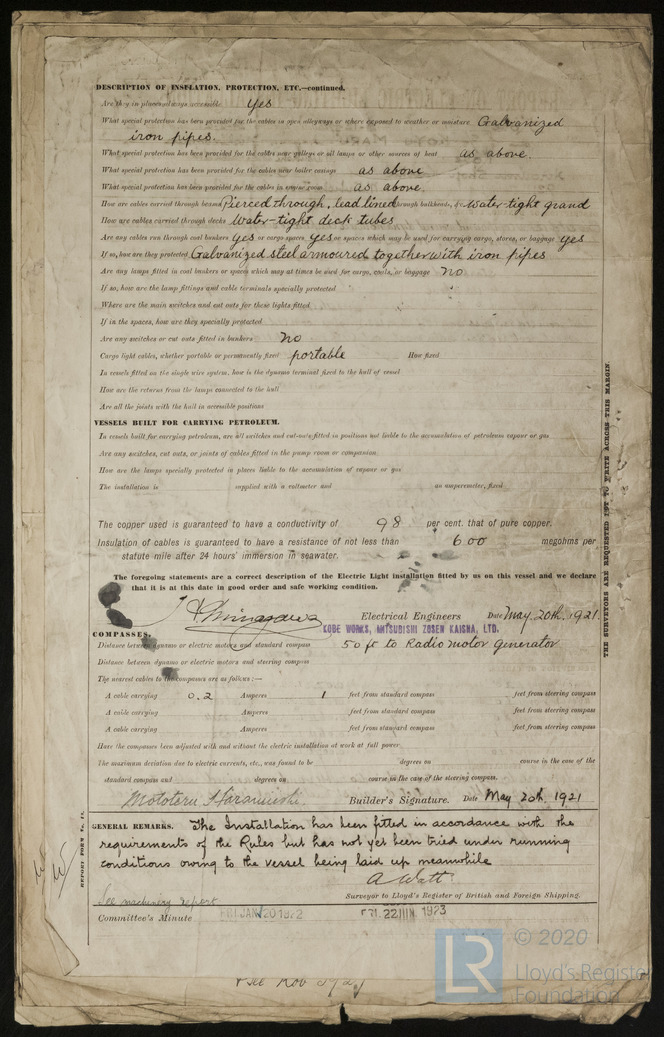 DESCRIPTION OF INSULATION, PROTECTION, ETC.—continued.
Are they in places always accessible yes
What special protection has been provided for the cables in open alleyways or where exposed to weather or moisture Galvanized
iron pipes.
What special protection has been provided for the cables near galleys or oil lamps or other sources of heat as above.
What special protection has been provided for the cables near boiler casings as above
What special protection has been provided for the cables in engine room as above.
How are cables carried through beams Pierced through, lead lined through bulkheads, &c. Water-tight grand
How are cables carried through decks Water-tight dick tubes
Are any cables run through coal bunkers yes or cargo spaces yes or spaces which may be used for carrying cargo, stores, or baggage yes
If so, how are they protected Galvanized steel armoured together with iron pipes
Are any lamps fitted in coal bunkers or spaces which may at times be used for cargo, coals, or baggage no
If so, how are the lamp fittings and cable terminals specially protected
Where are the main switches and cut outs for these lights fitted
If in the spaces, how are they specially protected
Are any switches or cut outs fitted in bunkers no
Cargo light cables, whether portable or permanently fixed portable How fixed
In vessels fitted on the single wire system, how is the dynamo terminal fixed to the hull of vessel
How are the returns from the lamps connected to the hull
Are all the joints with the hull in accessible positions
VESSELS BUILT FOR CARRYING PETROLEUM.
In vessels built for carrying petroleum, are all switches and cut-outs fitted in positions not liable to the accumulation of petroleum vapour or gas
Are any switches, cut outs, or joints of cables fitted in the pump room or companion
How are the lamps specially protected in places liable to the accumulation of vapour or gas
The installation is supplied with a voltmeter and an amperemeter, fixed
The copper used is guaranteed to have a conductivity of 98 per cent. that of pure copper.
Insulation of cables is guaranteed to have a resistance of not less than 600 megohms per
statute mile after 24 hours' immersion in seawater.
The foregoing statements are a correct description of the Electric Light installation fitted by us on this vessel and we declare
that it is at this date in good order and safe working condition.
Electrical Engineers Date May 20th, 1921.
KOBE WORKS, MITSUBISHI ZOSEN KAISHA, LTD.
COMPASSES.
Distance between dynamo or electric motors and standard compass 50 ft to Radio motor generator
Distance between dynamo or electric motors and steering compass
The nearest cables to the compasses are as follows:—
A cable carrying 0.2 Amperes 1 feet from standard compass feet from steering compass
A cable carrying Amperes feet from standard compass feet from steering compass
A cable carrying Amperes feet from standard compass feet from steering compass
Have the compasses been adjusted with and without the electric installation at work at full power
The maximum deviation due to electric currents, etc., was found to be degrees on course in the case of the
standard compass and degrees on course in the case of the steering compass.
Builder's Signature. Date May 20th, 1921
GENERAL REMARKS. The Installation has been fitted in accordance with the
requirements of the Rules but has not yet been tried under running
conditions owing to the vessel being laid up meanwhile
A Watt.
Surveyor to Lloyd's Register of British and Foreign Shipping.
See machinery report
Committee's Minute FRI. JAN. 20 1922 FRI. 22 JUN. 1923
THE SURVEYORS ARE REQUESTED NOT TO WRITE ACROSS THIS MARGIN.
REPORT FORM No. 14.
LR
© 2020
Lloyd's Register
Foundation